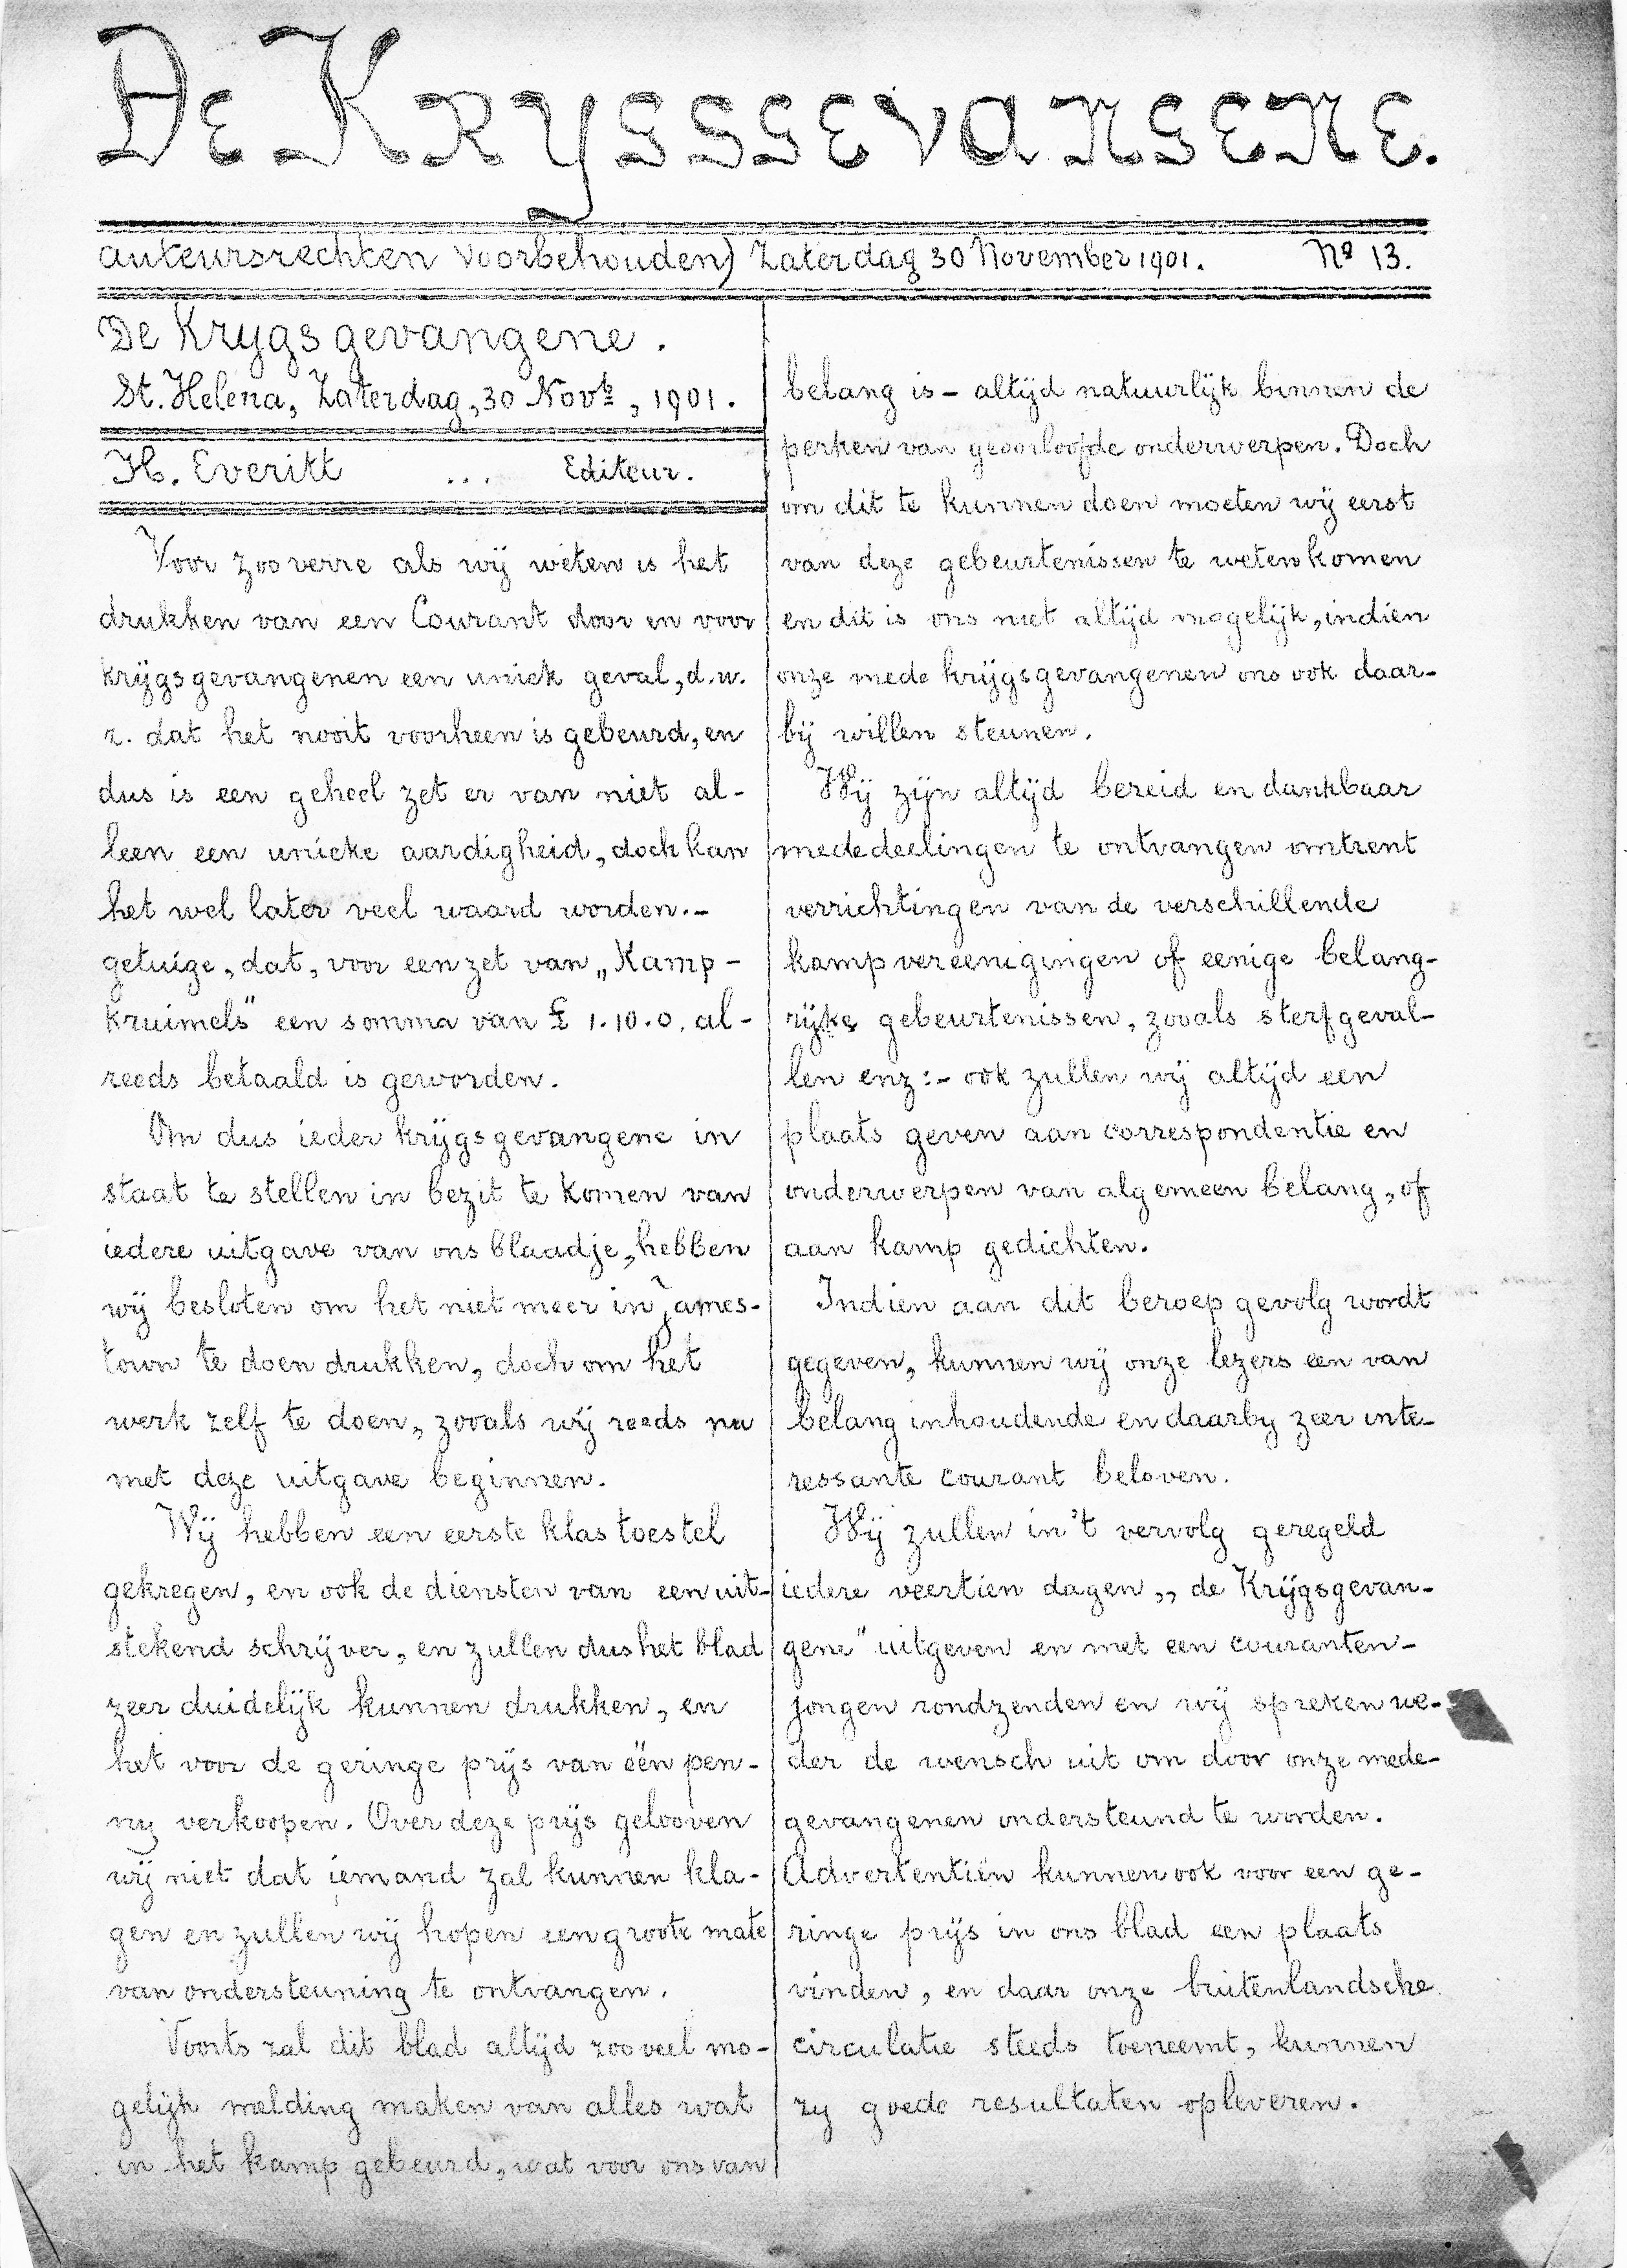 De Krygsgevangene.
Auteursrechten voorbehouden) Zaterdag 30 November 1901. No 13.
De Krygsgevangene.
St. Helena, Zaterdag, 30 Novbr, 1901.
H. Everitt ... Editeur.
Voor zooverre als wij weten is het
drukken van een Courant door en voor
krijgsgevangenen een uniek geval, d.w.
z. dat het nooit voorheen is gebeurd, en
dus is een geheel zet er van niet al-
leen een unieke aardigheid, doch kan
het wel later veel waard worden.-
getuige, dat, voor een zet van „Kamp-
kruimels" een somma van £ 1.10.0. al-
reeds betaald is geworden.
Om dus ieder krijgsgevangene in
staat te stellen in bezit te komen van
iedere uitgave van ons blaadje, hebben
wij besloten om het niet meer in James-
town te doen drukken, doch om het
werk zelf te doen, zooals wij reeds nu
met deze uitgave beginnen.
Wij hebben een eerste klas toestel
gekregen, en ook de diensten van een uit-
stekend schrijver, en zullen dus het blad
zeer duidelijk kunnen drukken, en
het voor de geringe prijs van één pen-
ny verkoopen. Over deze prijs gelooven
wij niet dat iemand zal kunnen kla-
gen en zullen wij hopen een groote mate
van ondersteuning te ontvangen.
Voorts zal dit blad altijd zooveel mo-
gelijk melding maken van alles wat
in het kamp gebeurd, wat voor ons van
belang is - altijd natuurlijk binnen de
perken van geoorloofde onderwerpen. Doch
om dit te kunnen doen moeten wij eerst
van deze gebeurtenissen te weten komen
en dit is ons niet altijd mogelijk, indien
onze mede krijgsgevangenen ons ook daar-
bij willen steunen.
Wij zijn altijd bereid en dankbaar
mededeelingen te ontvangen omtrent
verrichtingen van de verschillende
kampvereenigingen of eenige belang-
rijke gebeurtenissen, zooals sterfgeval-
len enz:- ook zullen wij altijd een
plaats geven aan correspondentie en
onderwerpen van algemeen belang, of
aan kamp gedichten.
Indien aan dit beroep gevolg wordt
gegeven, kunnen wij onze lezers een van
belang inhoudende en daarby zeer inte-
ressante courant beloven.
Wij zullen in't vervolg geregeld
iedere veertien dagen „de Krijgsgevan-
gene" uitgeven en met een couranten-
jongen rondzenden en wij spreken we-
der de wensch uit om door onze mede-
gevangenen ondersteund te worden.
Advertentiën kunnen ook voor een ge-
ringe prijs in ons blad een plaats
vinden, en daar onze buitenlandsche
circulatie steeds toeneemt, kunnen
zy goede resultaten opleveren.